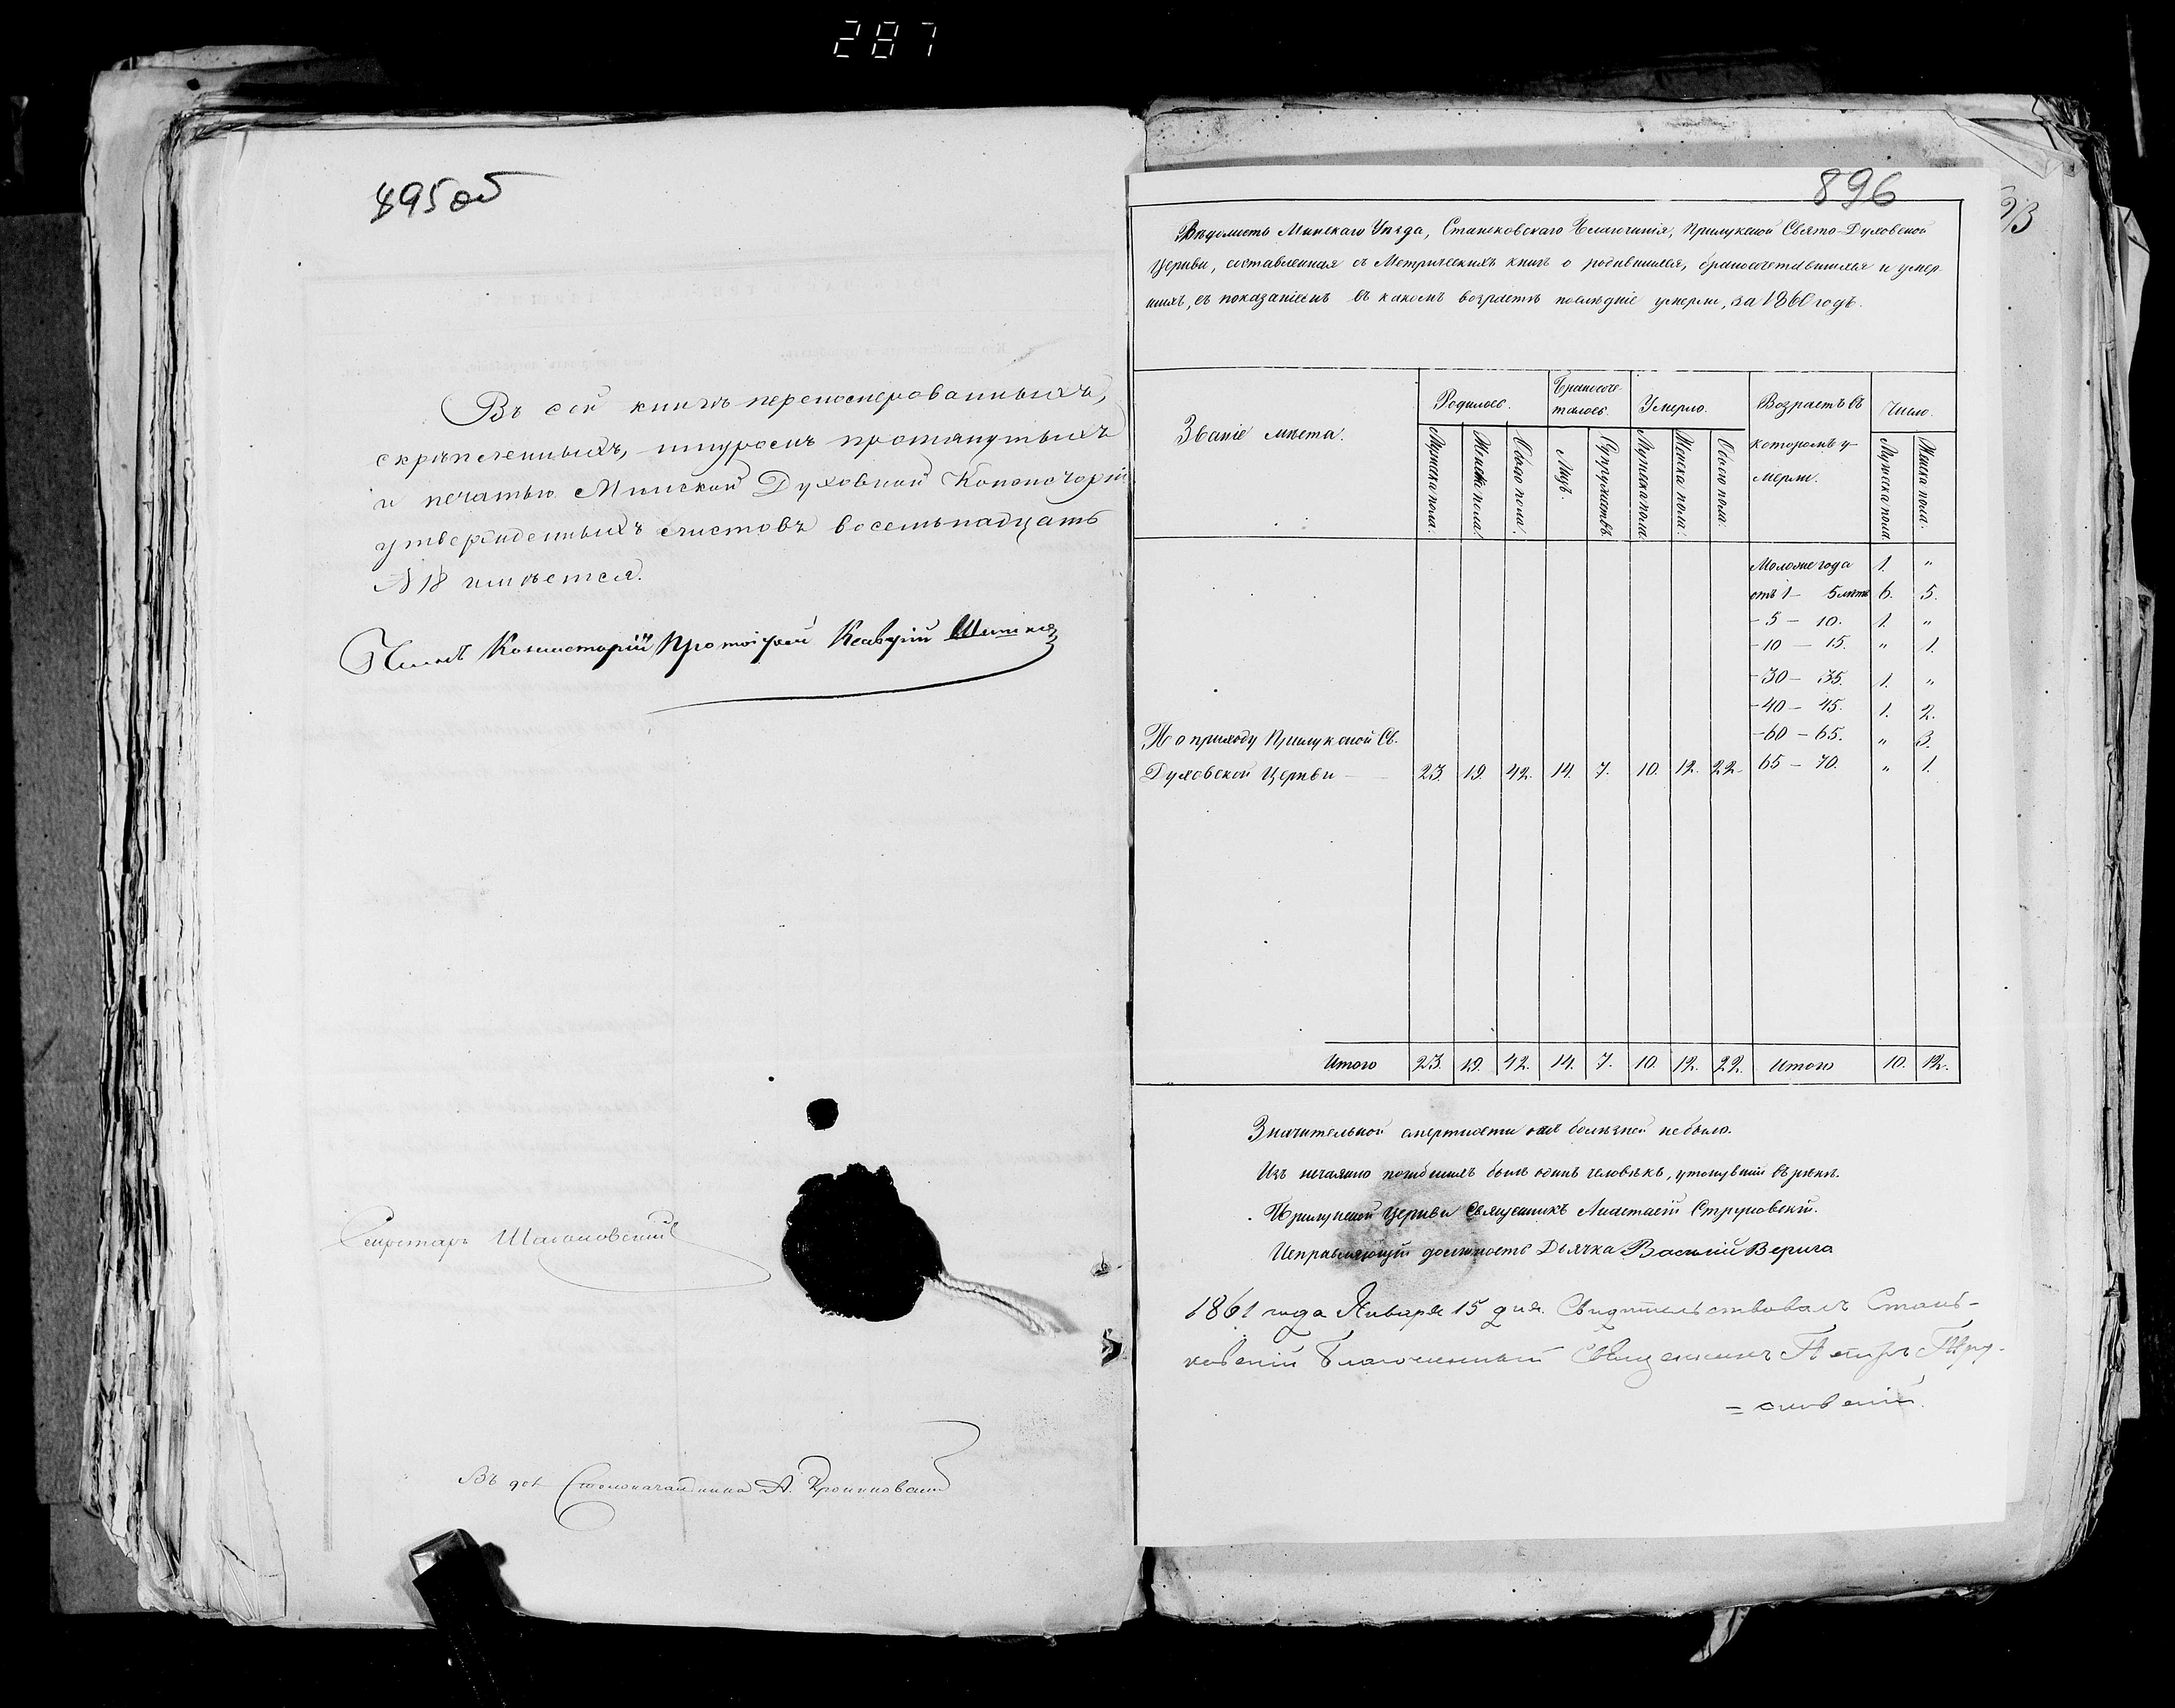 287
895 об
Въ сей книгѣ перенумерованныхъ,
скрѣпленныхъ, шнуромъ протянутыхъ
и печатью Минской Духовной Консисторіи
утвержденныхъ листовъ восемьнадцать
№ 18 имѣется.
Членъ Консисторіи Протоіерей
Секретарь
Въ дол. Столоначальника А.
896
Вѣдомость Минскаго Уѣзда, Станьковскаго Благочинія, Прилукской Свято-Духовской
Церкви, составленная съ Метрическихъ книгъ о родившихся, бракосочетавшихся и умер-
шихъ, съ показаніемъ въ какомъ возрастѣ послѣдніе умерли, за 1860 годъ.
Званіе мѣста. Родилось. Бракосоче-талось. Умерло. Возрастъ въ которомъ у-мерли. Число.
Мужеска пола. Женска пола. Обоего пола. Лицъ. Супружествъ. Мужеска пола. Женска пола. Обоего пола. Мужеска пола. Женска пола.
Моложе года 1. "
отъ 1 - 5 лѣтъ 6. 5.
- 5 - 10. 1. "
- 10 - 15. " 1.
- 30 - 35. 1. "
- 40 - 45. 1. 2.
- 60 - 65. " 3.
По приходу Прилукской Св.
Духовской Церкви 23. 19. 42. 14. 7. 10. 12. 22. 65 - 70. " 1.
Итого 23. 19. 42. 14. 7. 10. 12. 22. Итого 10. 12.
Значительной смертности отъ болѣзней не было.
Изъ нечаянно погибшихъ былъ одинъ человѣкъ, утонувшій въ рѣкѣ.
Прилукской Церкви Священникъ Анастасій Струковскій.
Исправляющій должность Дьячка Василій Верига
1861 года Января 15 дня. Свидѣтельствовалъ Стань-
ковскій Благочинный Священникъ Петръ